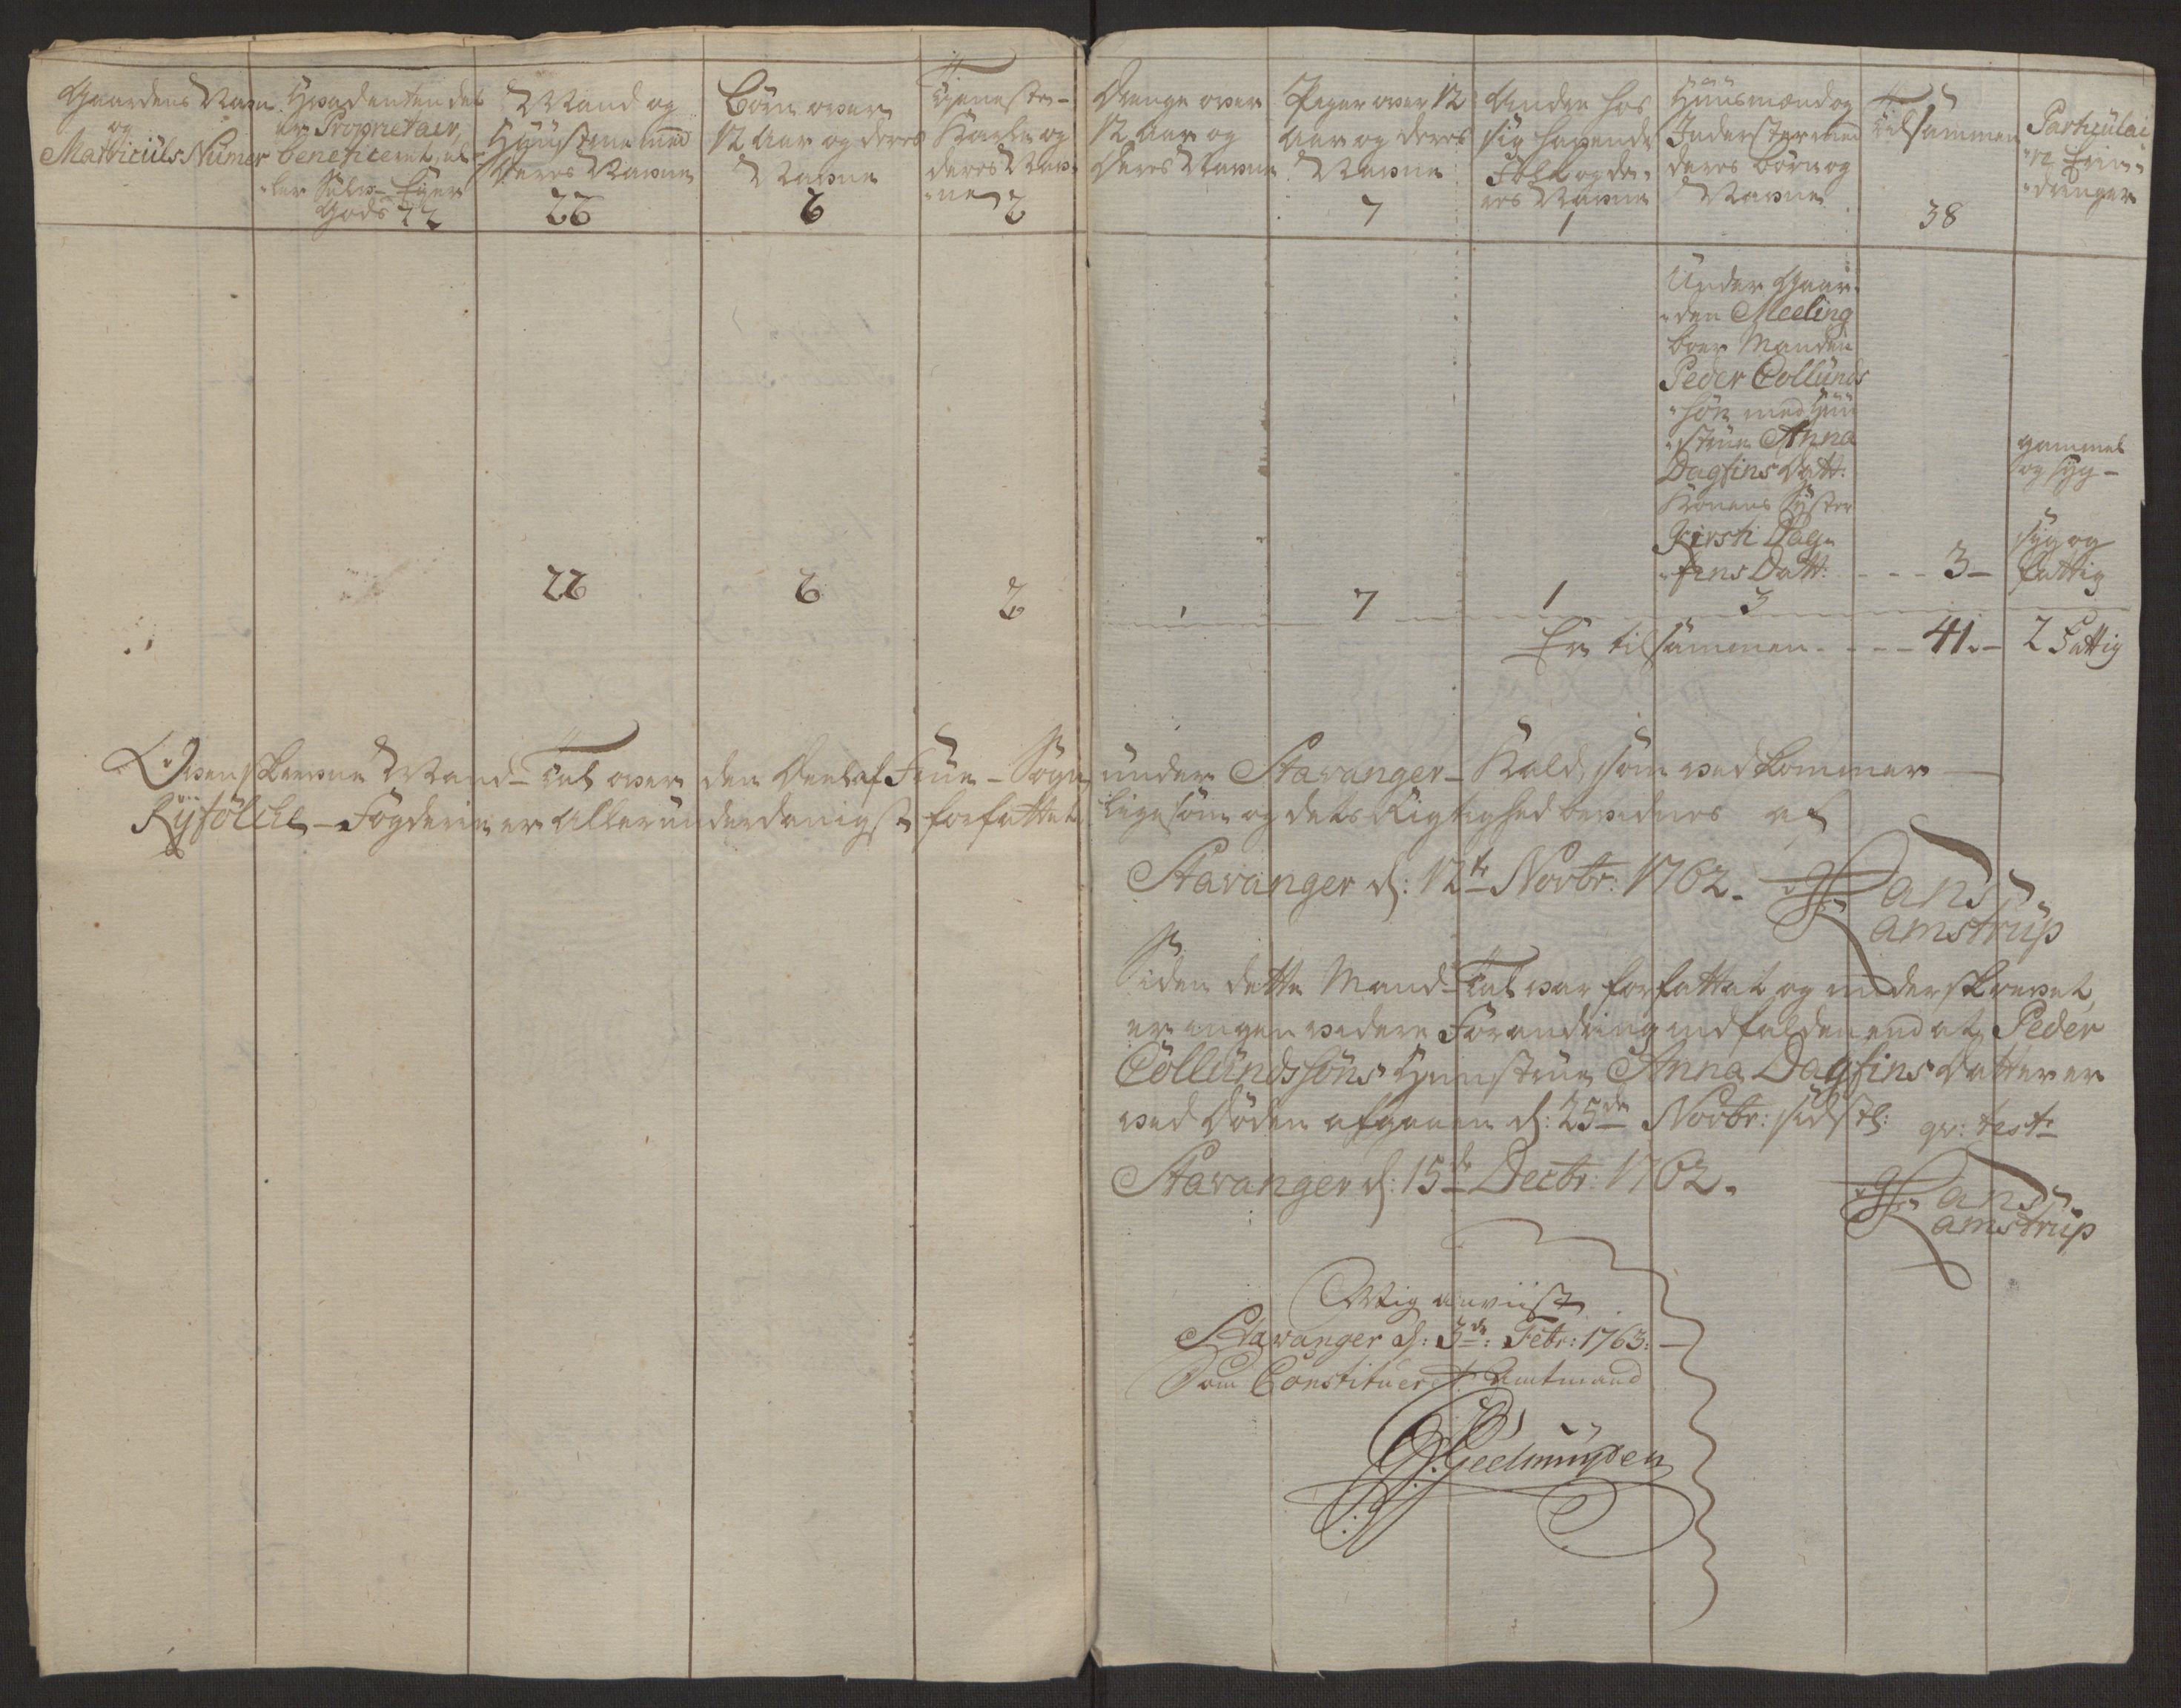 Gaardens Navn
og
Matriculs Numer
Hvadenten det
er Proprietair,
beneficeret, el-
ler Selv-Eyer
Gods
Mand og
Hüüstrue med
deres Navne
22
Börn over
12 Aar og deres
Navne
6
Tieneste-
Karle og
deres Nav-
ne 2
Drenge over
12 Aar og
deres Navne
Piger over 12
Aar og deres
Navne
7
Andre hos
sig havende
Folk og de-
res Navne
1
Hüüsmænd og
Inderster med
deres börn og
Navne
Tilsammen
38
Particulai
re Erin-
dringer
Under Gaar-
den Meeling
boer Manden
Peder Collünds
sön med Hüü
strue Anna
Dagfins Datt:
gammel
og syg -
Konens Syster
Kirsti Dag-
fins Datt: - - - 3 -
syg og
fattig
22 6 2 1 7 1 3
Er tilsammen - - - - 41 - 2 Fattig
Ovenskrevne Mand-Tal over den Deel af Früe-Sogn under Stavanger-Kald, som vedkommer
Ryfölche-Fögderie er allerunderdanigst forfattet, ligesom og dets Rigtighed bevidnes af
Stavanger d: 12te Novbr: 1762.
Hans
Ramstrüp
Siden dette Mand-Tal var forfattet og underskrevet,
er ingen videre Forandring indfalden end at Peder
Cöllündssöns Hüüstrue Anna Dagfins Datter er
ved Döden afgaaen d: 25de Novbr: sidstl: qv: test:
Stavanger d: 15de Decbr: 1762.
Hans
Ramstrüp
Mig anviist
Stavanger d: 3de: Febr: 1763. -
Som Constitueret Amtmand
Geelmüyden